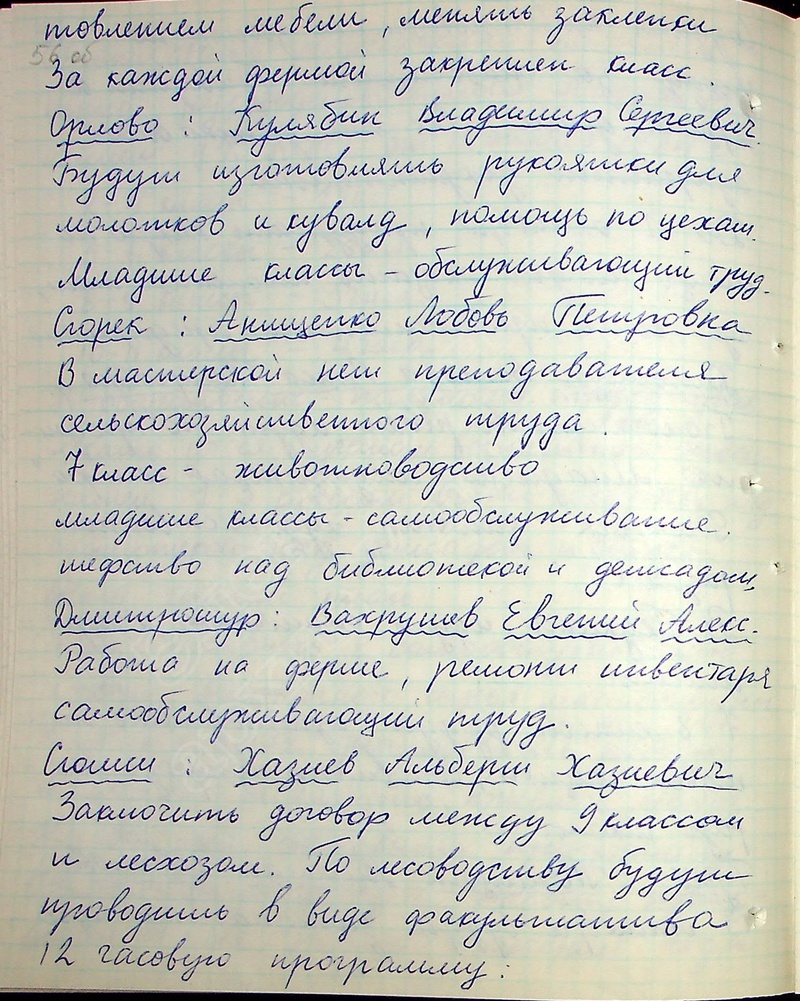 товлением мебели, менять заклепки
56 об
За каждой фермой закреплен класс.
Орлово : Кулябин Владимир Сергеевич.
Будут изготовлять рукоятки для
молотков и кувалд, помощь по цехам.
Младшие классы - обслуживающий труд.
Сгорек : Анищенко Любовь Петровна
В мастерской нет преподавателя
сельскохозяйственного труда.
7 класс - животноводство
младшие классы - самообслуживание.
шефство над библиотекой и детсадом,
Дмитрошур: Вахрушев Евгений Алекс.
Работа на ферме, ремонт инвентаря
самообслуживающий труд.
Хазиев Альберт Хазиевич
Заключить договор между 9 классом
и лесхозом. По лесоводству будут
проводить в виде факультатива
12 часовую программу.